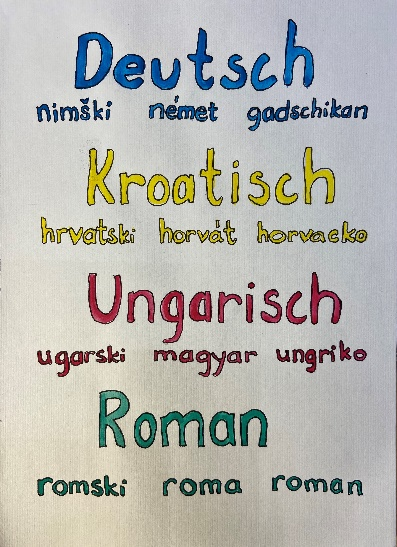 Deutsch
nimški német gadschikan
Kroatisch
hrvatski horvát horvacko
Ungarisch
ugarski magyar ungriko
Roman
romski roma roman